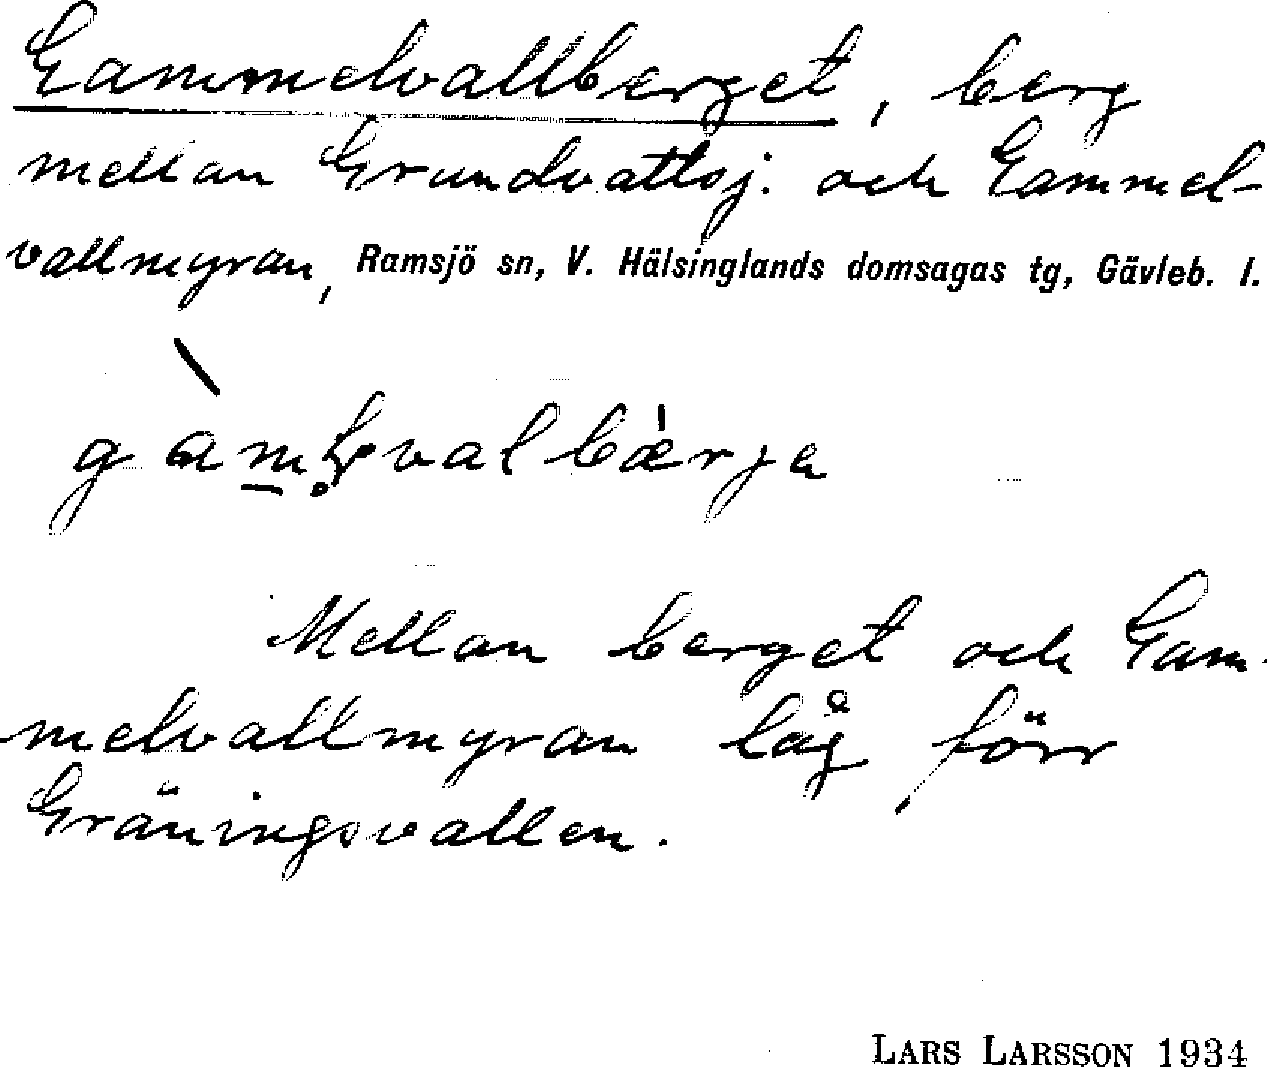 Gammelvallberget, berg
mellan Grundvattsj. och Gammel-
vallmyran, Ramsjö sn, V. Hälsinglands domsagas tg, Gävleb. l.
Mellan berget och Gam-
melvallmyran låg förr
Gräningsvallen.
LARS LARSSON 1934